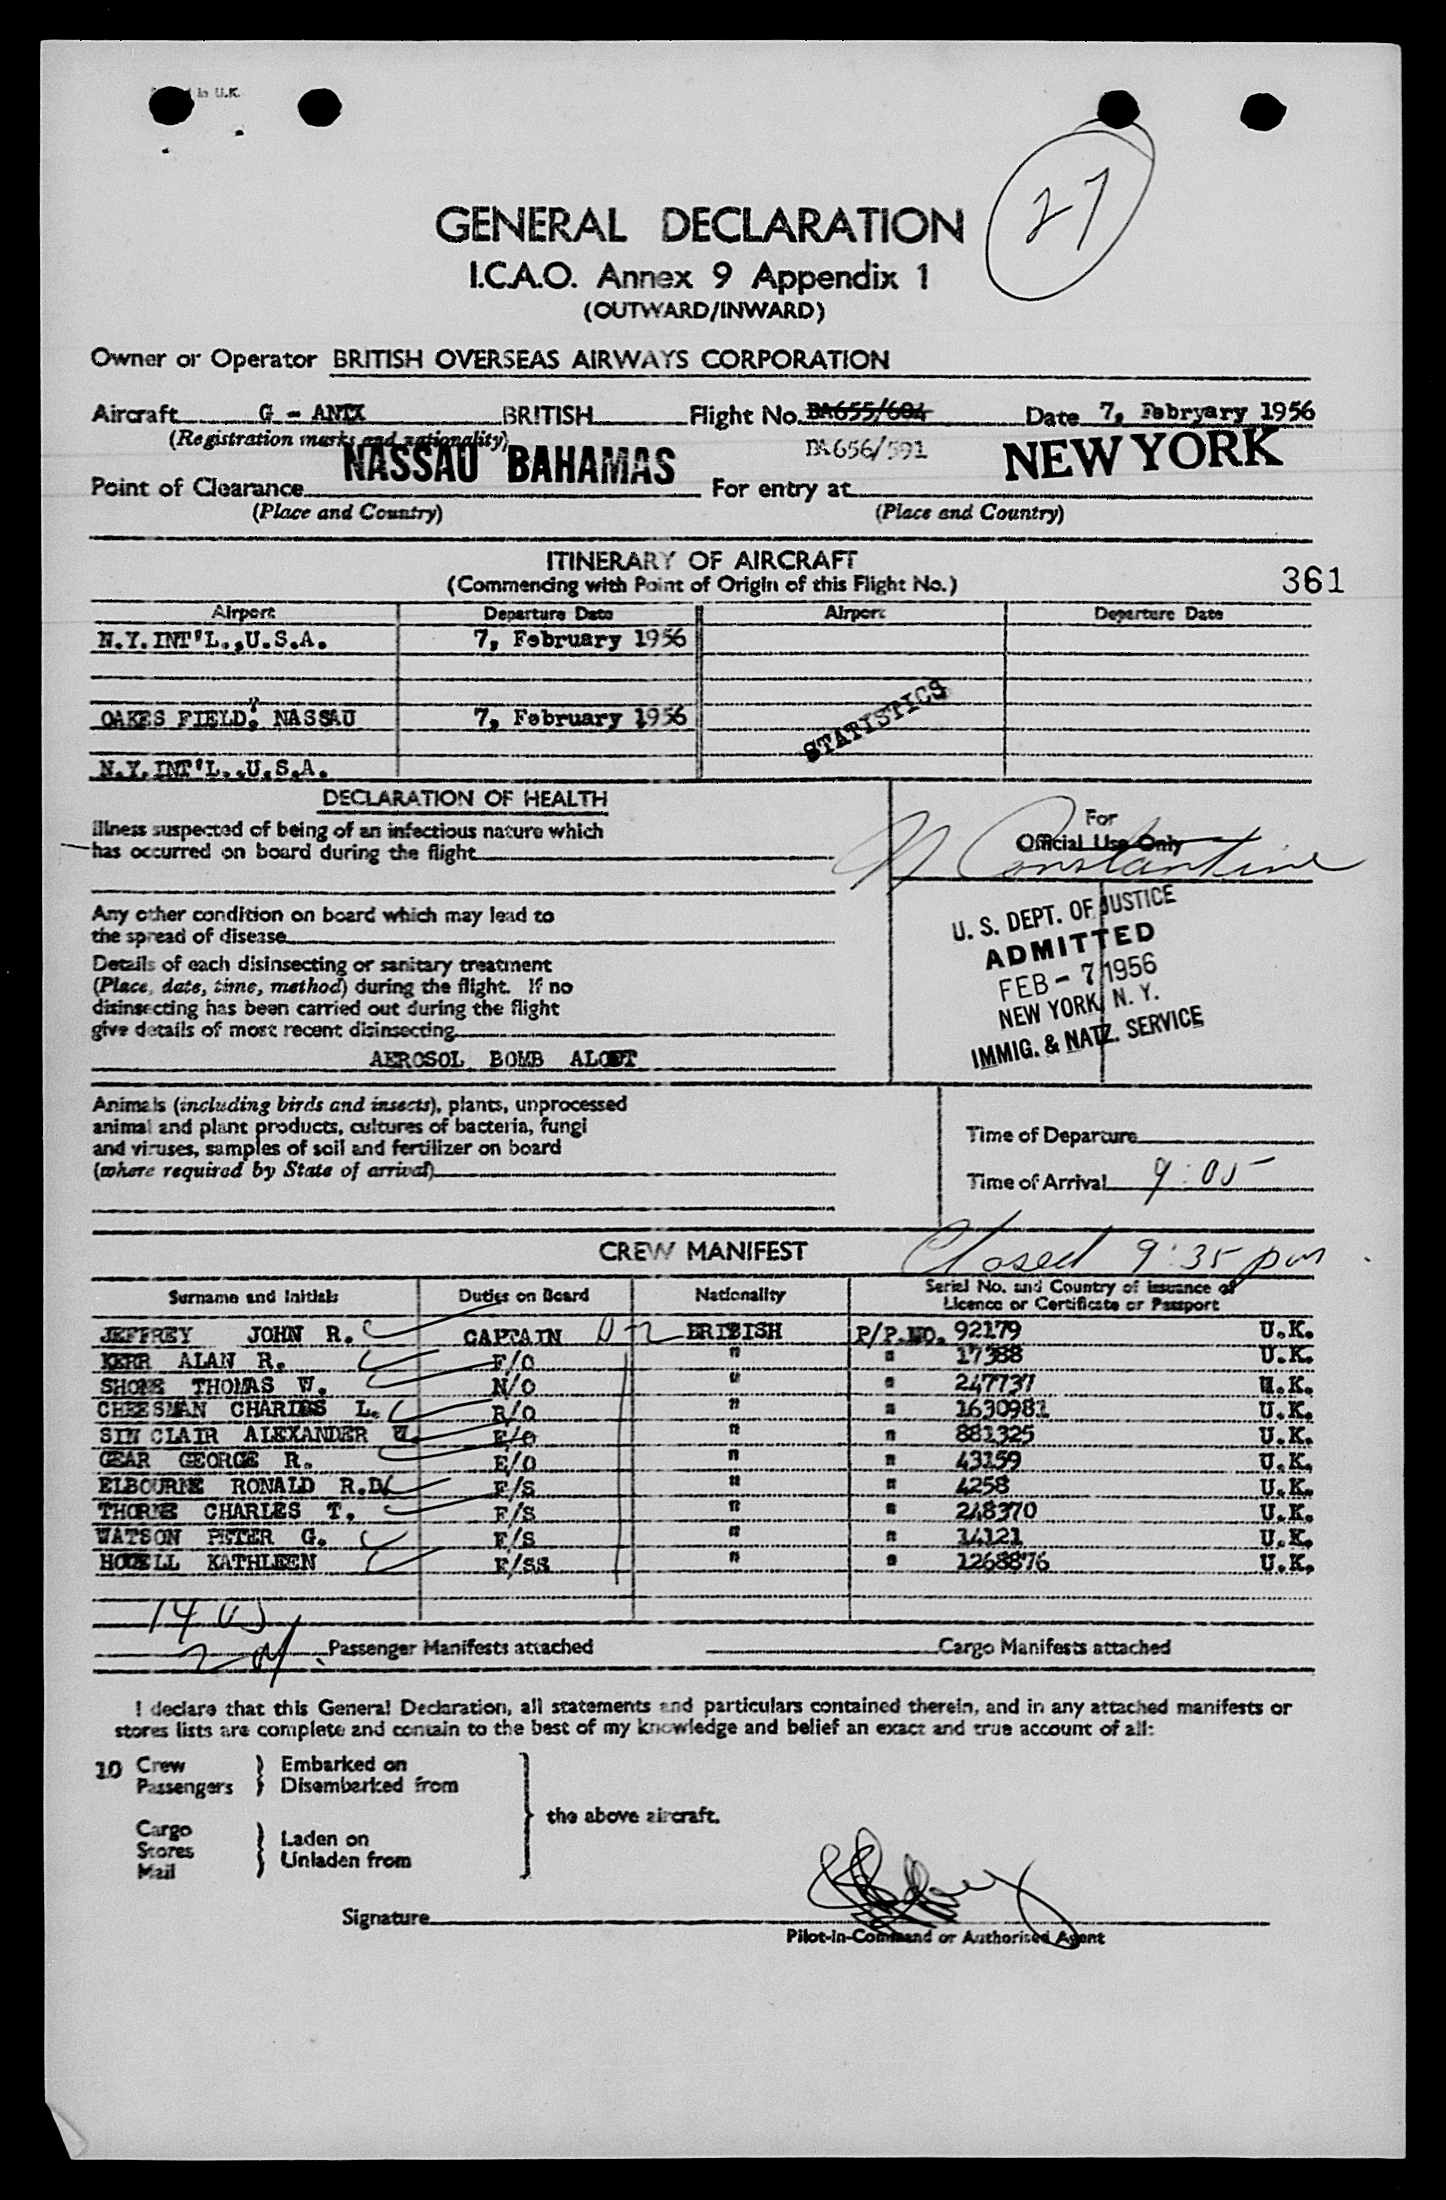 in U.K.
27
GENERAL DECLARATION
I.C.A.O. Annex 9 Appendix 1
(OUTWARD/INWARD)
Owner or Operator BRITISH OVERSEAS AIRWAYS CORPORATION
Aircraft G - ANTX BRITISH Flight No. BA655/604 Date 7, Febryary 1956
(Registration marks and nationality) BA656/591
NASSAU BAHAMAS NEW YORK
Point of Clearance For entry at
(Place and Country) (Place and Country)
ITINERARY OF AIRCRAFT
(Commencing with Point of Origin of this Flight No.) 361
Airport Departure Date Airport Departure Date
N.Y.INT'L.,U.S.A. 7, February 1956
OAKES FIELD, NASSAU 7, February 1956
STATISTICS
N.Y.INT'L.,U.S.A.
DECLARATION OF HEALTH
Illness suspected of being of an infectious nature which
has occurred on board during the flight
For
Official Use Only
Constantine
Any other condition on board which may lead to
the spread of disease
Details of each disinsecting or sanitary treatment
(Place, date, time, method) during the flight. If no
disinsecting has been carried out during the flight
give details of most recent disinsecting
AEROSOL BOMB ALOFT
U. S. DEPT. OF JUSTICE
ADMITTED
FEB - 7 1956
NEW YORK, N. Y.
IMMIG. & NATZ. SERVICE
Animals (including birds and insects), plants, unprocessed
animal and plant products, cultures of bacteria, fungi
and viruses, samples of soil and fertilizer on board
(where required by State of arrival)
Time of Departure
Time of Arrival 9:05
CREW MANIFEST Closed 9:35 pm
Surname and Initials Duties on Board Nationality Serial No. and Country of issuance of
Licence or Certificate or Passport
JEFFREY JOHN R. CAPTAIN D-2 BRITISH P/P.NO. 92179 U.K.
KERR ALAN R. F/O " " 17388 U.K.
SHONE THOMAS W. N/O " " 247737 U.K.
CHEESMAN CHARLES L. R/O " " 1630981 U.K.
SINCLAIR ALEXANDER E/O " " 881325 U.K.
GEAR GEORGE R. E/O " " 43159 U.K.
ELBOURNE RONALD R.D. F/S " " 4258 U.K.
THORNE CHARLES T. F/S " " 248370 U.K.
WATSON PETER G. F/S " " 14121 U.K.
HOWELL KATHLEEN F/SS " " 1268876 U.K.
Passenger Manifests attached Cargo Manifests attached
I declare that this General Declaration, all statements and particulars contained therein, and in any attached manifests or
stores lists are complete and contain to the best of my knowledge and belief an exact and true account of all:
10 Crew Embarked on
Passengers Disembarked from
the above aircraft.
Cargo
Stores Laden on
Mail Unladen from
Signature
Pilot-in-Command or Authorised Agent